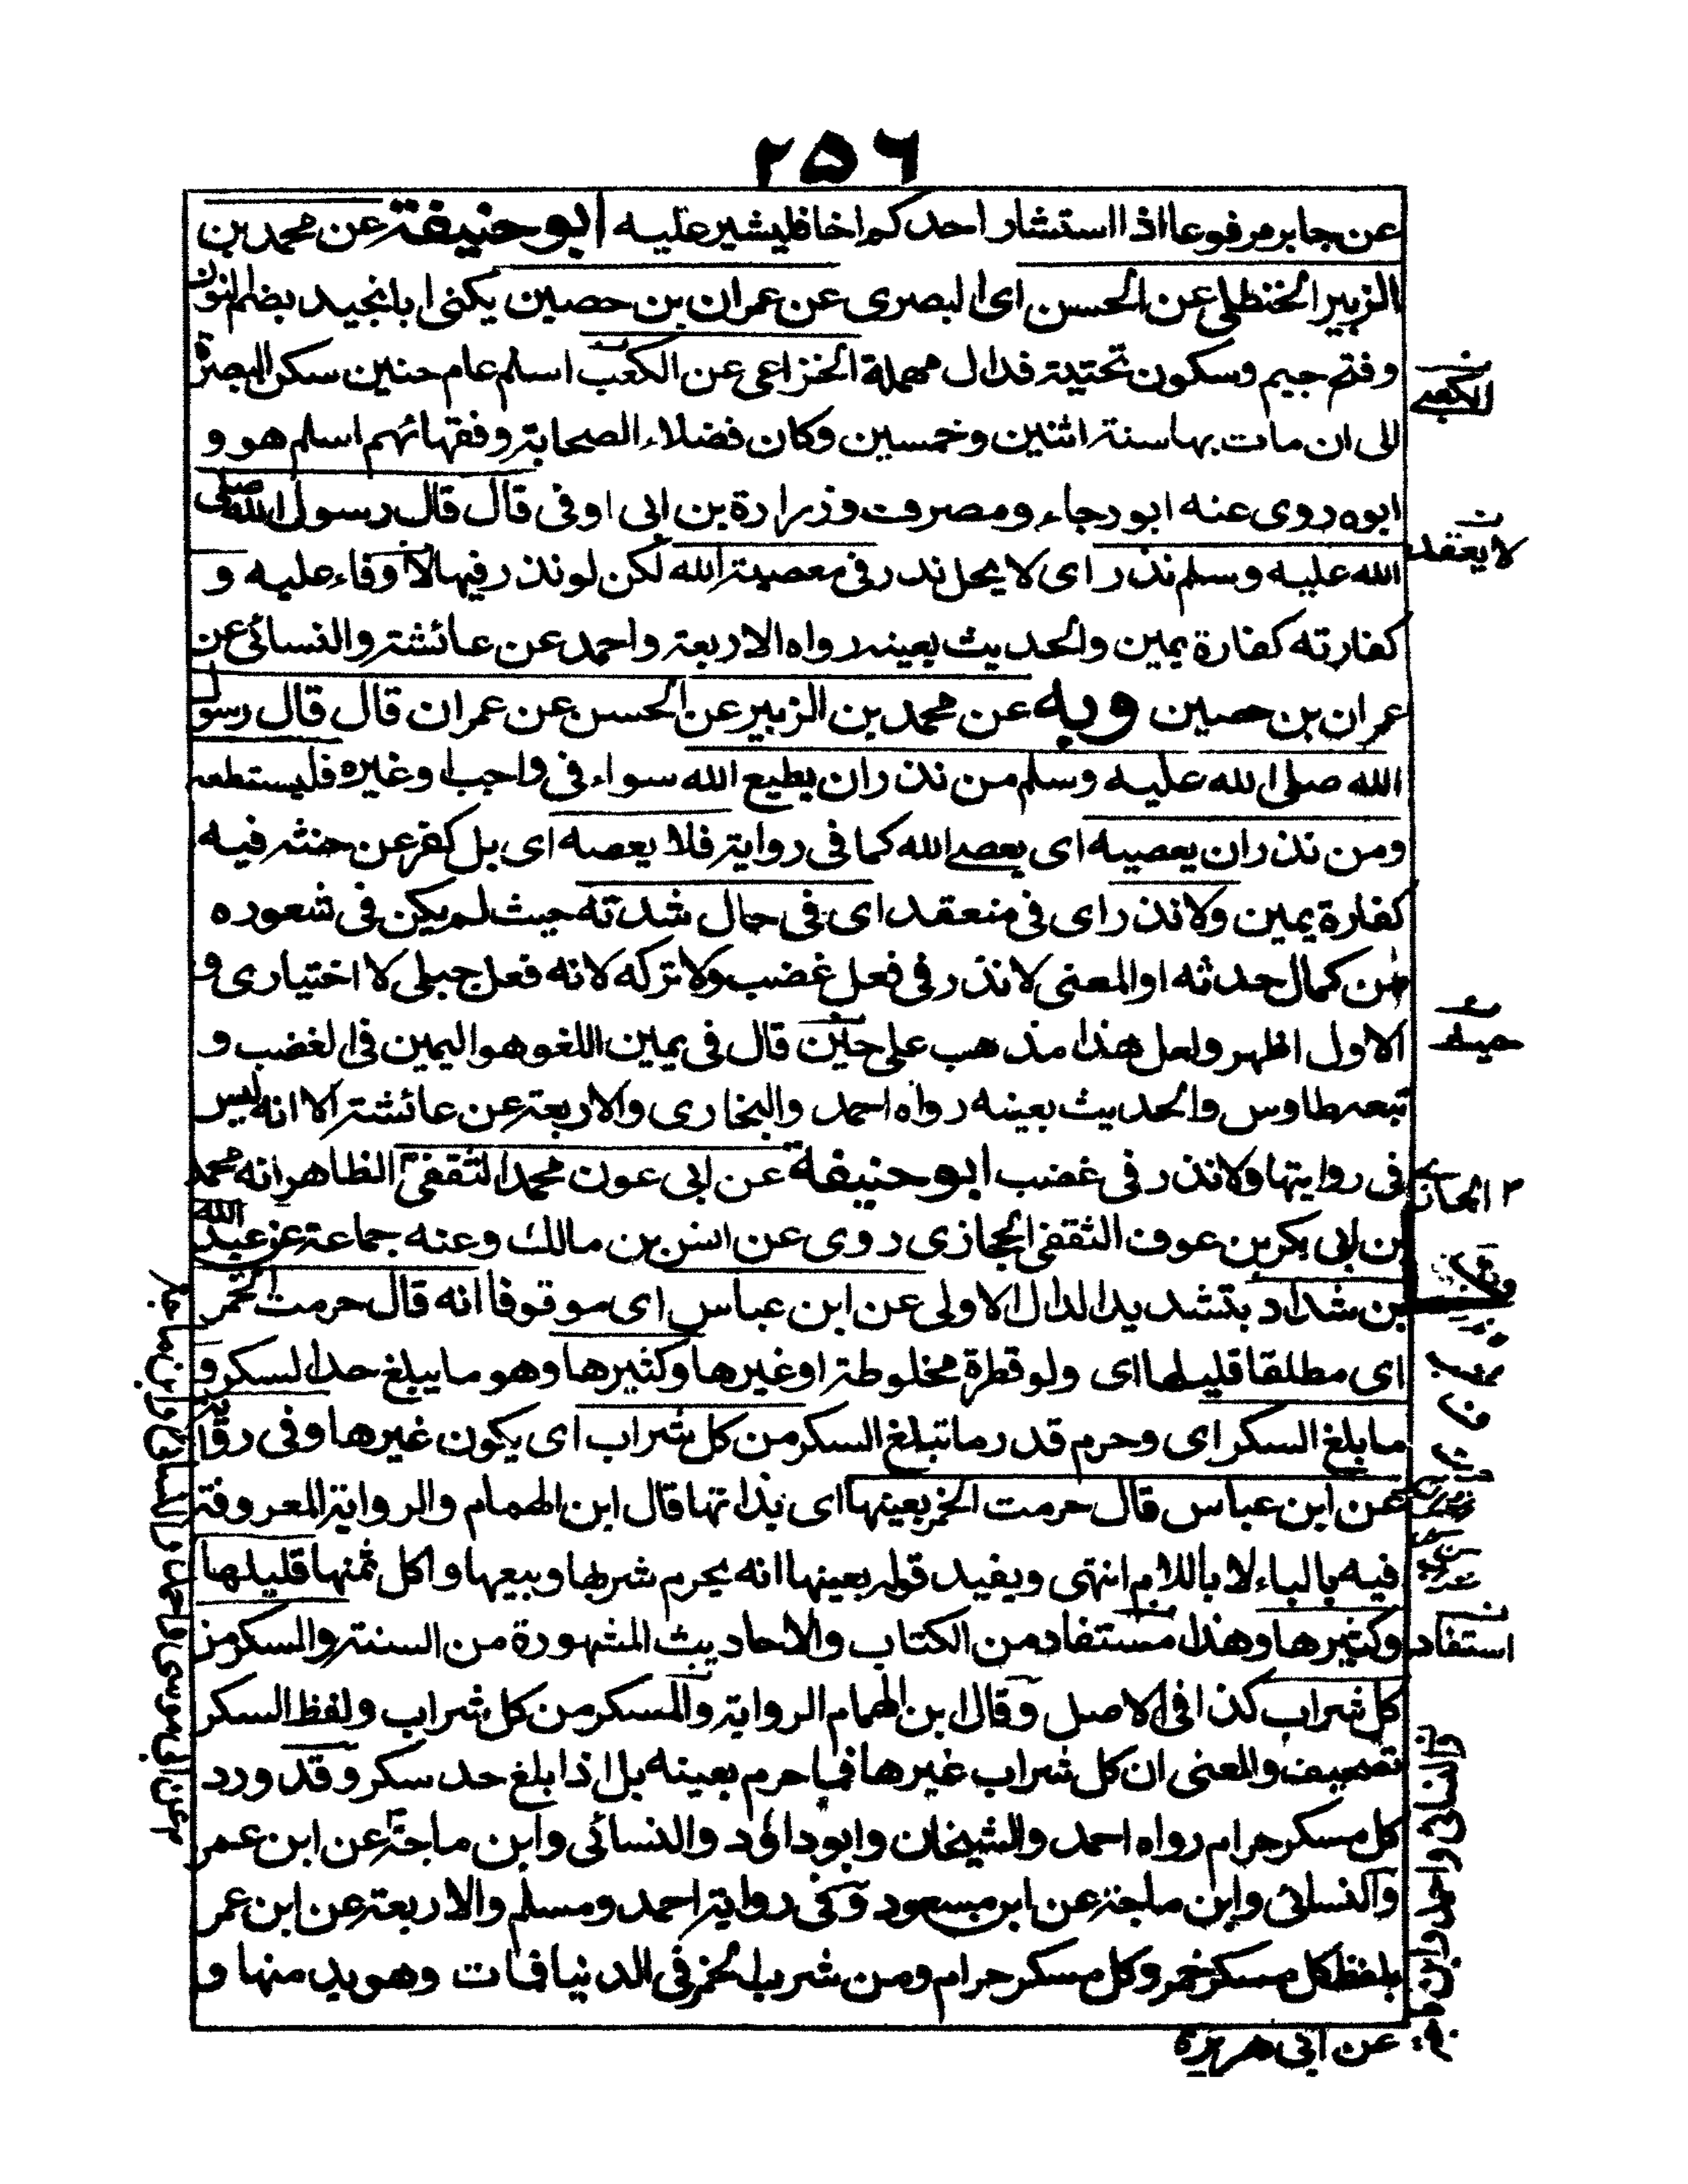 ٢٥٦
عن جابر مرفوعا اذا استشار احدكم اخاه فليشير عليه ابو حنيفة عن محمد بن
الزبير الحنظلي عن الحسن اى البصرى عن عمران بن حصين يكنى ابا نجيد بضم النون
وفتح جيم وسكون تحتية فدال مهملة الخزاعى عن الكعب اسلم عام حنين سكن البصرة
الى ان مات بها سنة اثنين وخمسين وكان فضلاء الصحابة وفقهائهم اسلم هو و
ابوه روى عنه ابو رجاء ومصروت وزرارة بن ابى اوفى قال قال رسول الله صلى
الله عليه وسلم نذر اى لا يحل نذر فى معصية الله لكن لو نذر فيها لا وفاء عليه و
كفارته كفارة يمين والحديث بعينه رواه الاربعة واحمد عن عائشة والنسائى عن
عمران بن حصين وبه عن محمد بن الزبير عن الحسن عن عمران قال قال رسول
الله صلى الله عليه وسلم من نذر ان يطيع الله سواء فى واجب او غيره فليستطعه
ومن نذر ان يعصيه اى يعصى الله كما فى رواية فلا يعصه اى بل كفر عن حنثه فيه
كفارة يمين ولا نذر اى فى منعقد اى فى حال شدته حيث لم يكن فى شعوره
من كمال حدثه او المعنى لا نذر فى فعل غضب ولا تركه لانه فعل جبلى لا اختيارى و
الاول اظهر ولعل هذا مذهب على حين قال فى يمين اللغو هو اليمين فى الغضب و
تبعه طاوس والحديث بعينه رواه احمد والبخارى والاربعة عن عائشة الا انه ليس
فى روايتها ولا نذر فى غضب ابو حنيفة عن ابى عون محمد الثقفى الظاهر انه محمد
بن ابى بكر بن عوف الثقفى الحجازى روى عن انس بن مالك وعنه جماعة عن عبد الله
بن شداد بتشديد الدال الاولى عن ابن عباس اى موقوفا انه قال حرمت الخمر
اى مطلقا قليلها اى ولو قطرة مخلوطة او غيرها وكثيرها وهو ما يبلغ حد السكر و
ما بلغ السكر اى وحرم قدر ما تبلغ السكر من كل شراب اى يكون غيرها وفى رواية
عن ابن عباس قال حرمت الخمر بعينها اى بذاتها قال ابن الهمام والرواية المعروفة
فيه بالباء لا باللام انتهى ويفيد قوله بعينها انه يحرم شربها وبيعها واكل ثمنها قليلها
وكثيرها وهذا مستفاد من الكتاب والاحاديث المشهورة من السنة والسكر من
كل شراب كذا فى الاصل وقال ابن الهمام الرواية والمسكر من كل شراب ولفظ السكر
تصحيف والمعنى ان كل شراب غيرها فما حرم بعينه بل اذا بلغ حد سكر وقد ورد
كل مسكر حرام رواه احمد والشيخان وابو داؤد والنسائى وابن ماجة عن ابن عمر
والنسائى وابن ماجة عن ابن مسعود وفى رواية احمد ومسلم والاربعة عن ابن عمر
بلفظ كل مسكر خمر وكل مسكر حرام ومن شرب الخمر فى الدنيا فمات وهو يدمنها و
عن ابى هريرة
الكعبى
لا يعقد
استفاد
عن ابى موسى واحمد والنسائى وابن ماجة
والنسائى واحمد وابن